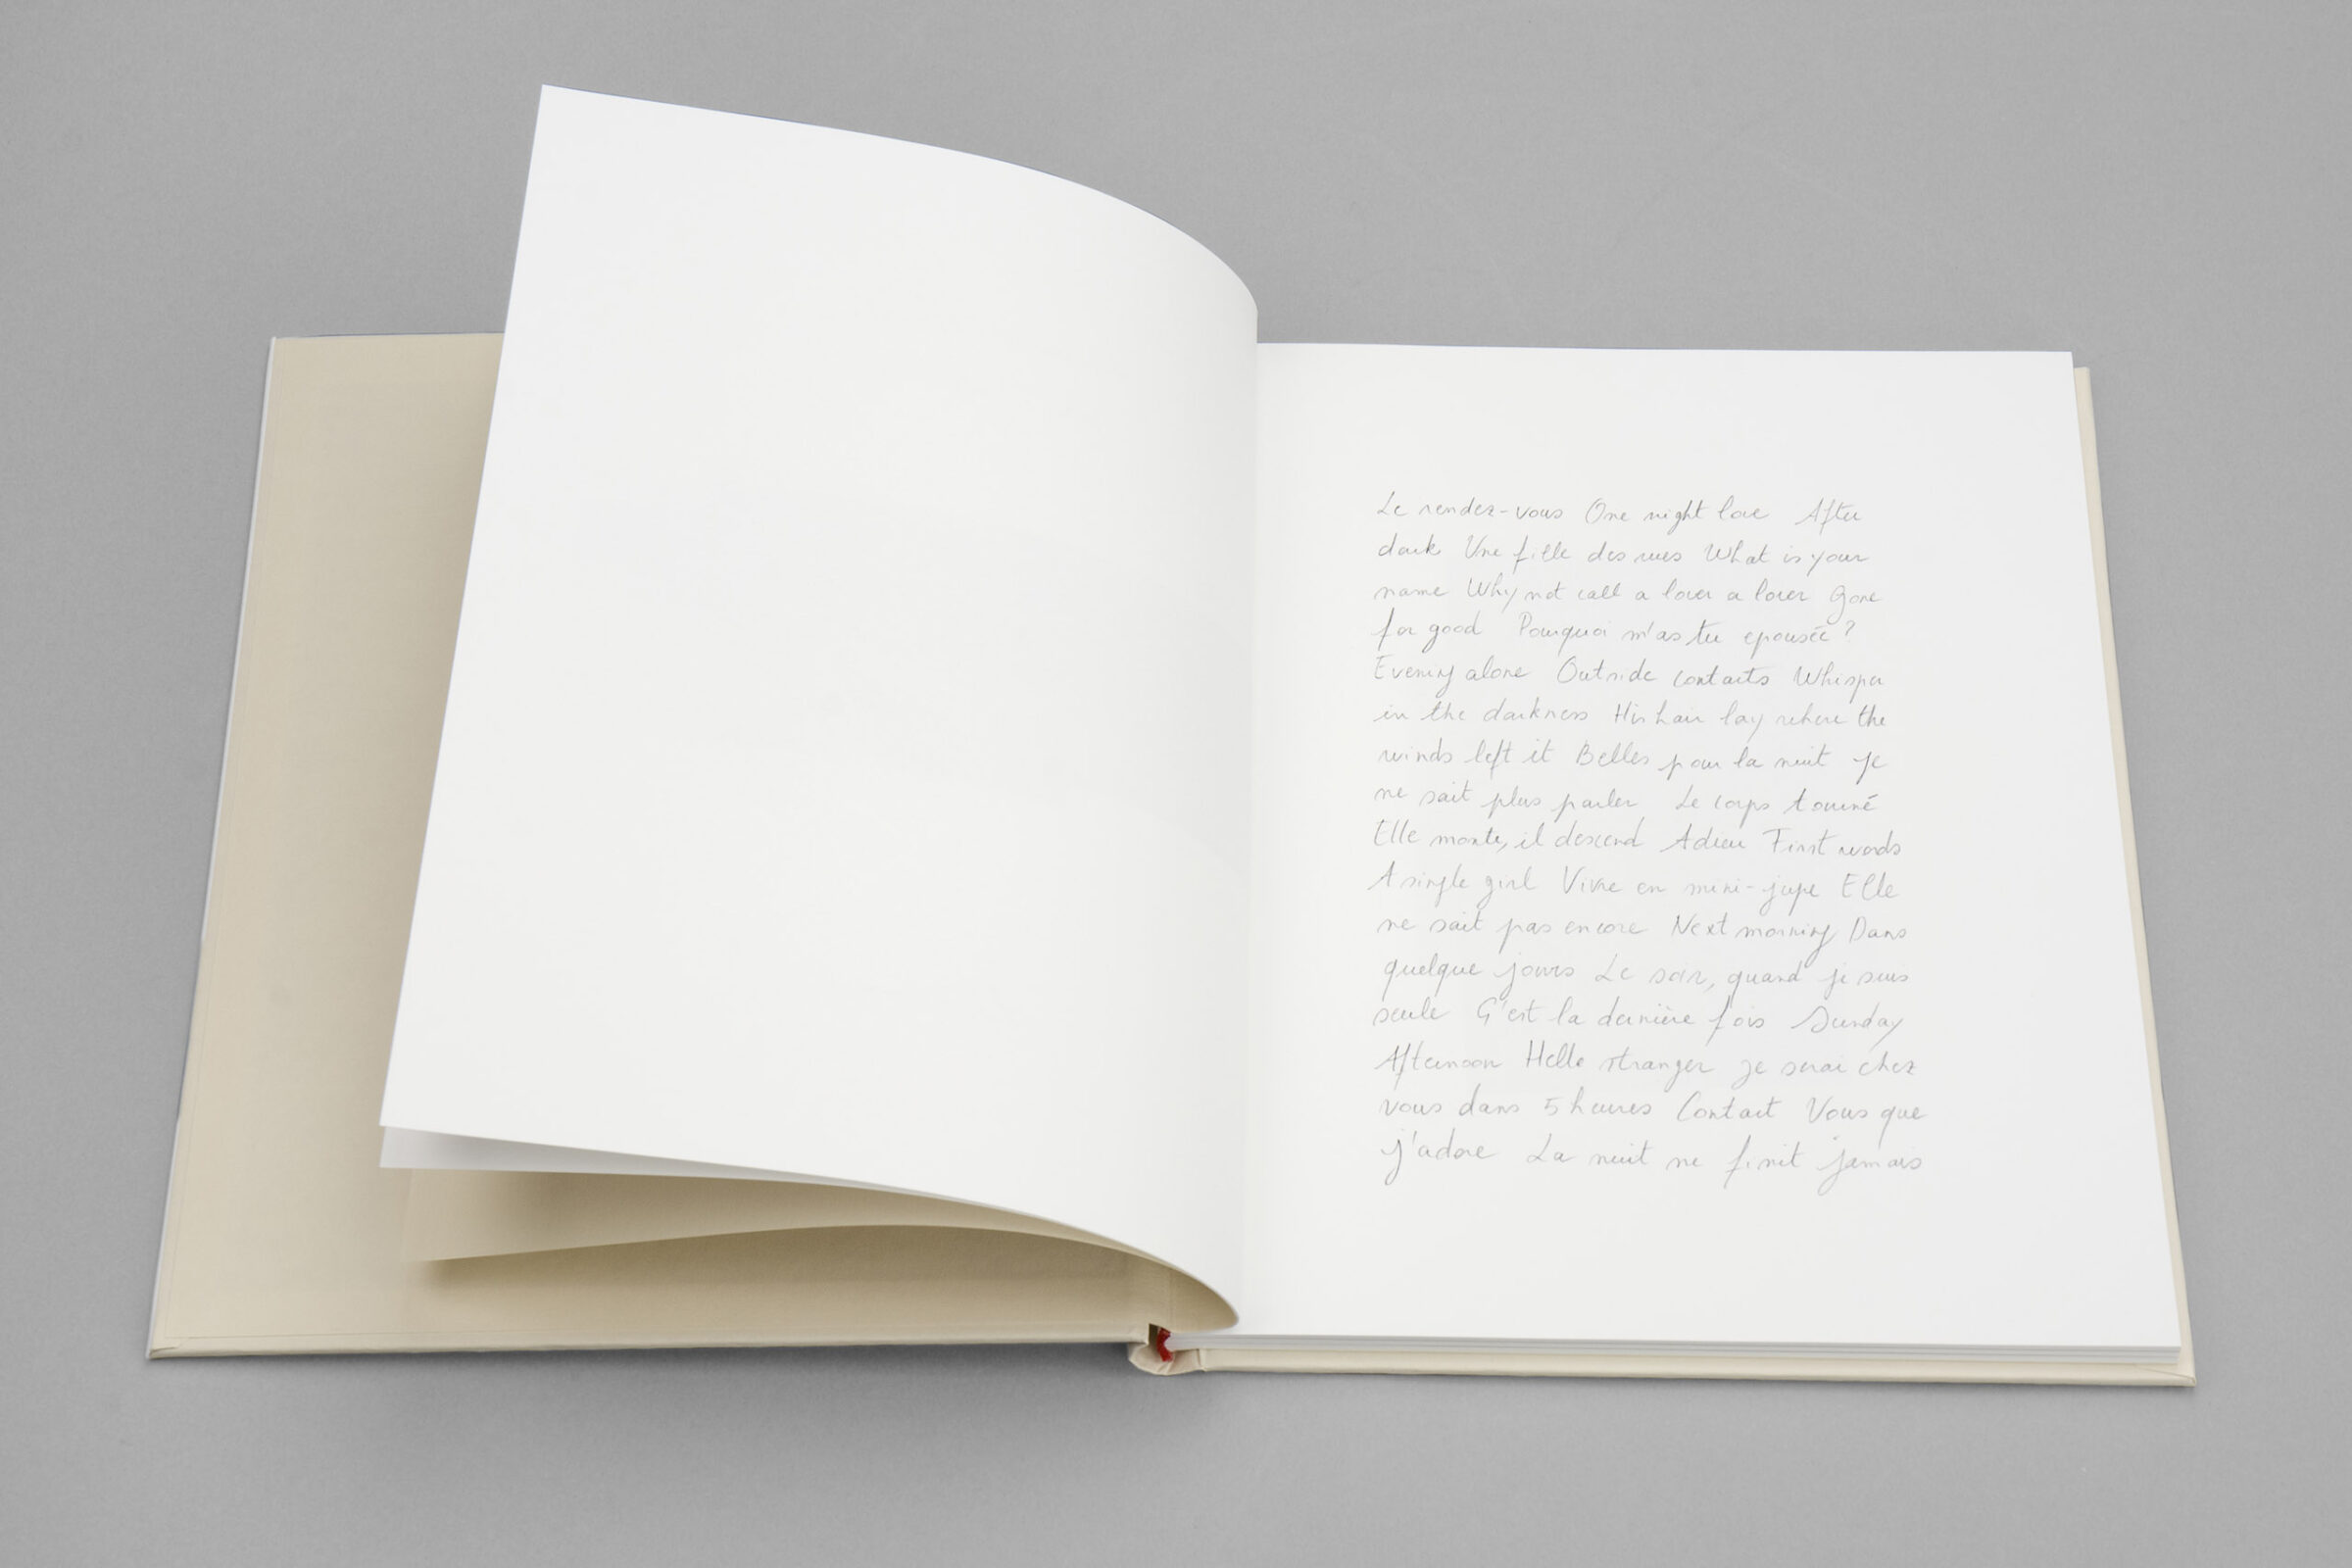 Le rendez-vous One night love After
dark Une fille des rues What is your
name Why not call a lover a lover Gone
for good Pourquoi m'as tu epousée ?
Evening alone Outside contacts Whisper
in the darkness His hair lay where the
winds left it Belles pour la nuit Je
ne sait plus parler Le corps tourné
Elle monte, il descend Adieu First words
A single girl Vivre en mini-jupe Elle
ne sait pas encore Next morning Dans
quelque jours Le soir, quand je suis
seule C'est la dernière fois Sunday
Afternoon Hello stranger Je serai chez
vous dans 5 heures Contact Vous que
j'adore La nuit ne finit jamais